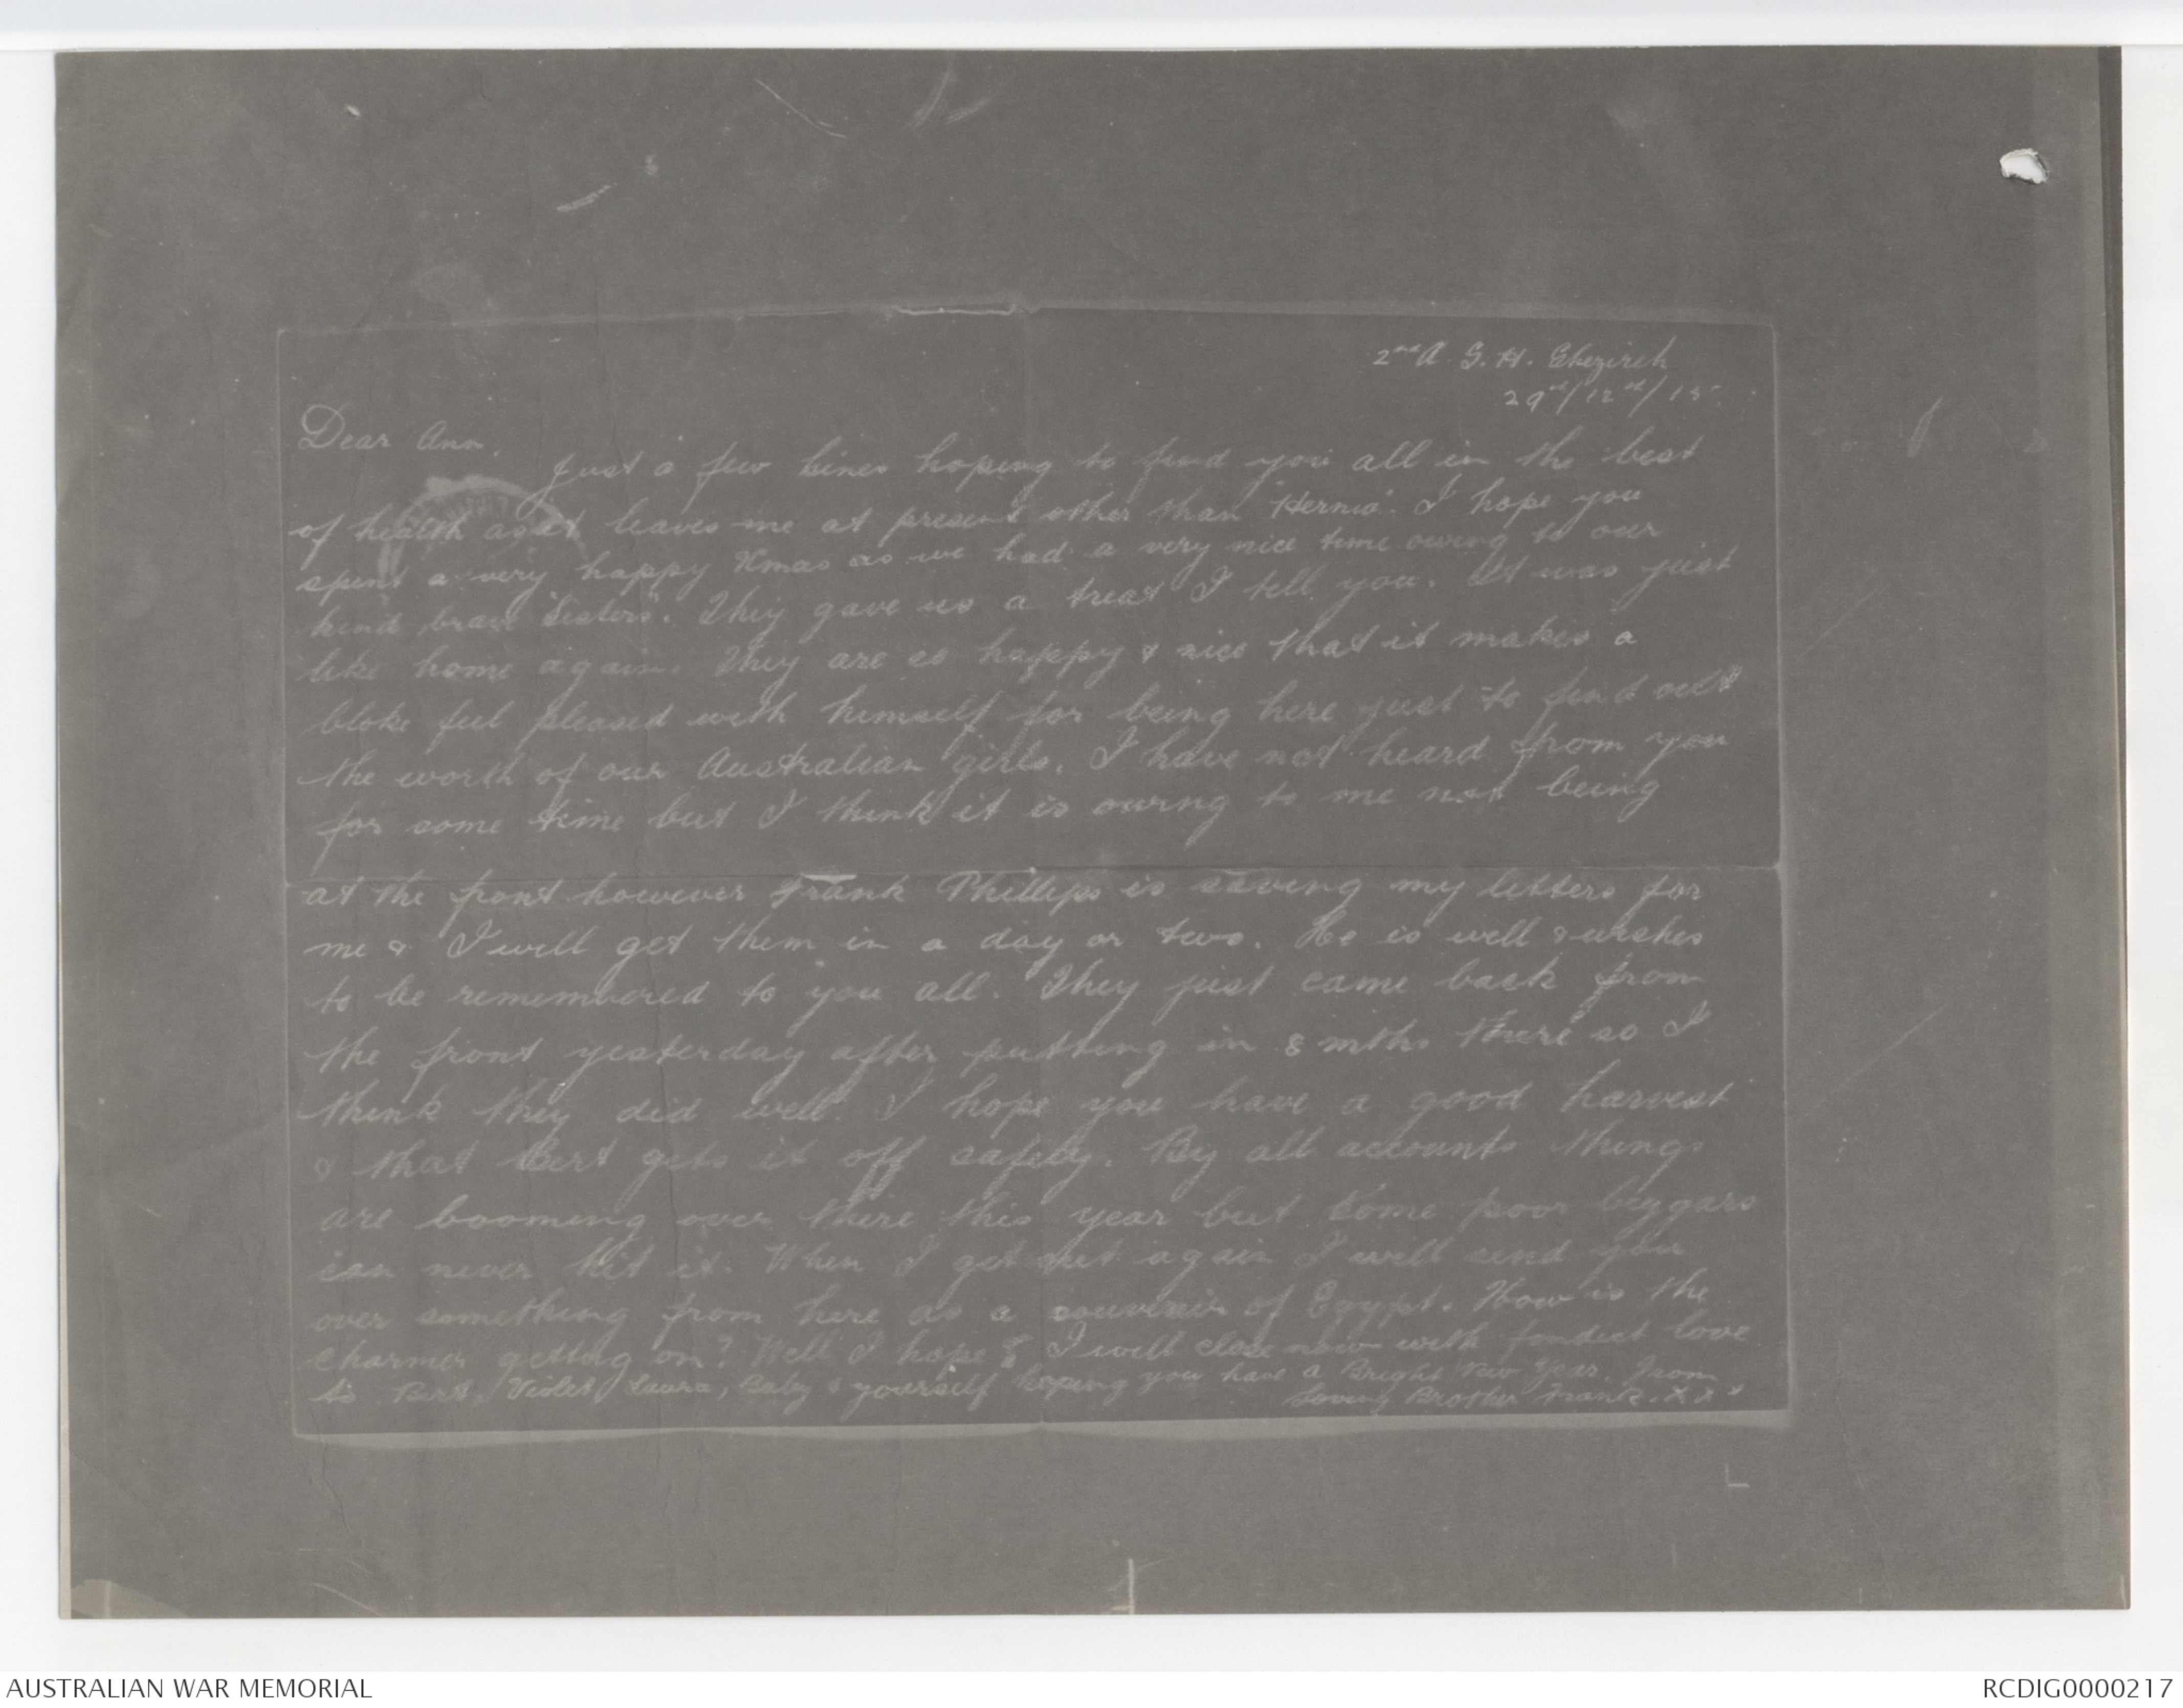 2nd A. G. H. Ghezireh
29th/12th/15
Dear Ann.
Just a few lines hoping to find you all in the best
of health as it leaves me at present other than "Hernia". I hope you
spent a very happy Xmas as we had a very nice time owing to our
kind brave "Sisters". They gave us a treat I tell you. It was just
like home again. They are so happy & nice that it makes a
bloke feel pleased with himself for being here just to find out
the worth of our Australian girls. I have not heard from you
for some time but I think it is owing to me not being
at the front however Frank Phillips is saving my letters for
me & I will get them in a day or two. He is well & wishes
to be remembered to you all. They just came back from
the front yesterday after putting in 8 mths there so I
think they did well. I hope you have a good harvest
& that Bert gets it off safely. By all accounts things
are booming over there this year but some poor beggars
can never hit it. When I get out again I will send you
over something from here as a souvenir of Egypt. How is the
charmer getting on? Well I hope I will close now with fondest love
to Bert, Violet, Laura, Baby & yourself hoping you have a Bright New Year. From
Loving Brother Frank. x x x
AUSTRALIAN WAR MEMORIAL
RCDIG0000217